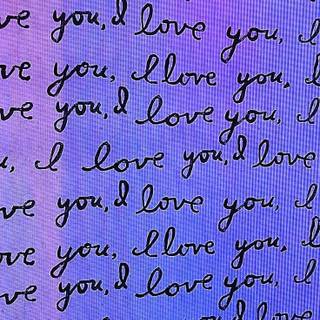 ve you, I love you, I
ve you, I love you, I
ve you, I love you, I
u, I love you, I love
ve you, I love you, I
ve you, I love you, I
ve you, I love you, I
you, I love